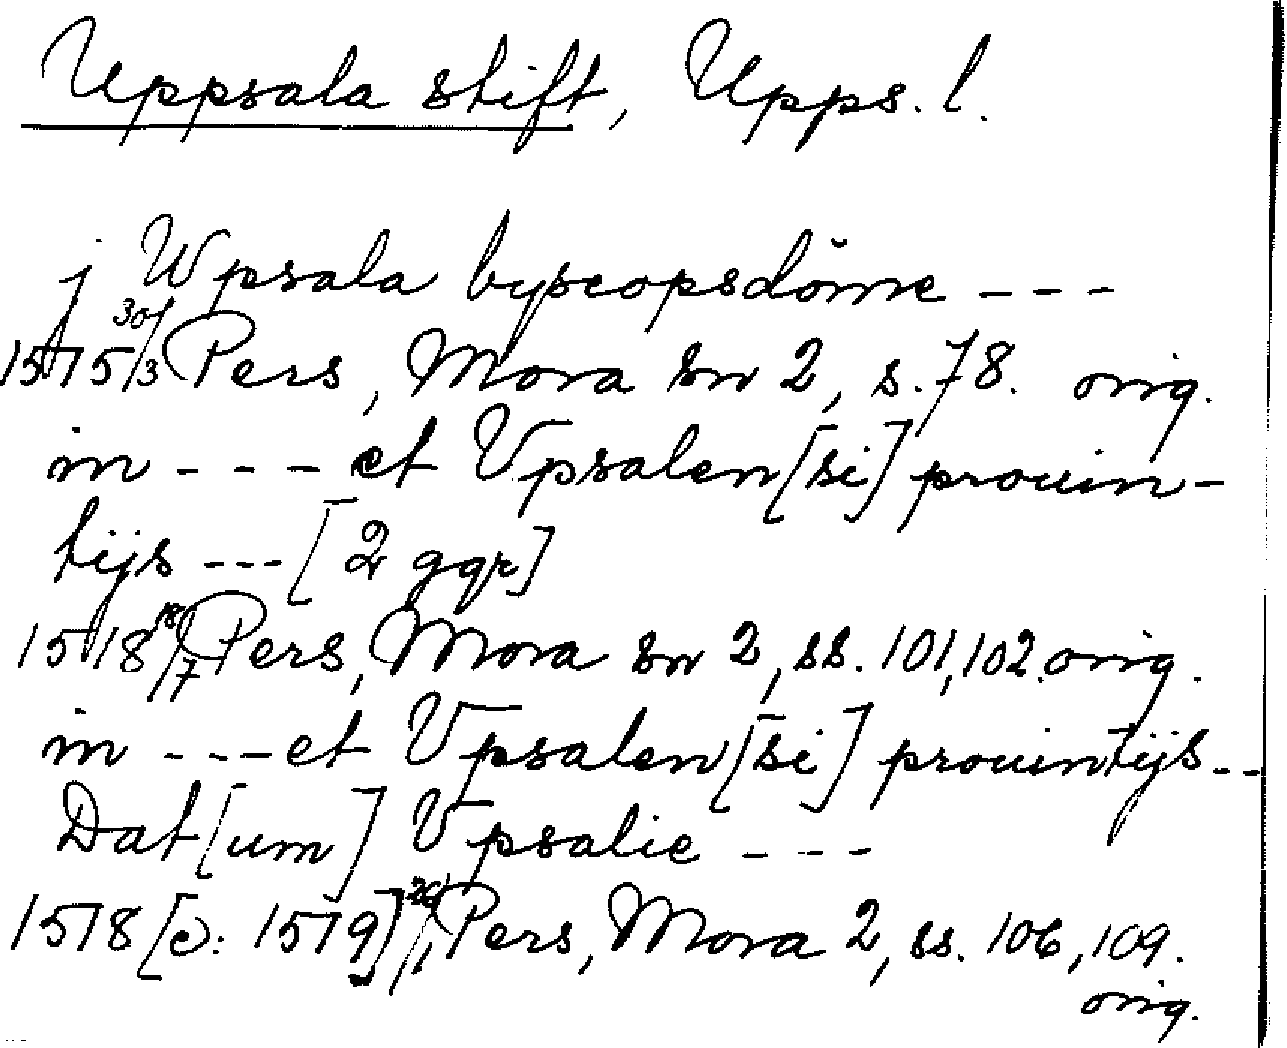 Uppsala stift, Upps. l.
j Wpsala byscopsdŏme ---
1515 30/3 Pers, Mora sn 2, s. 78. orig.
in --- et Vpsalen[si] prouin-
tijs --- [2 ggr]
1518 18/7 Pers, Mora sn 2, ss. 101, 102. orig.
in --- et Vpsalen[si] prouintijs --
Dat[um] Vpsalie ---
1518 [ɔ: 1519] 20/1 Pers, Mora 2, ss. 106, 109.
orig.